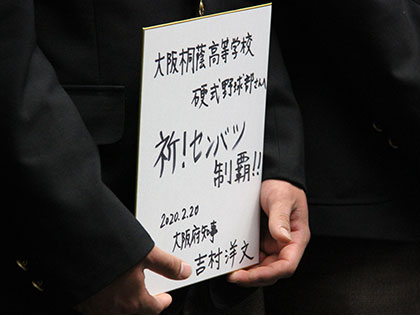 大阪桐蔭高等学校
硬式野球部さん
祈!センバツ
制覇!!
2020.2.20
大阪府知事
吉村洋文